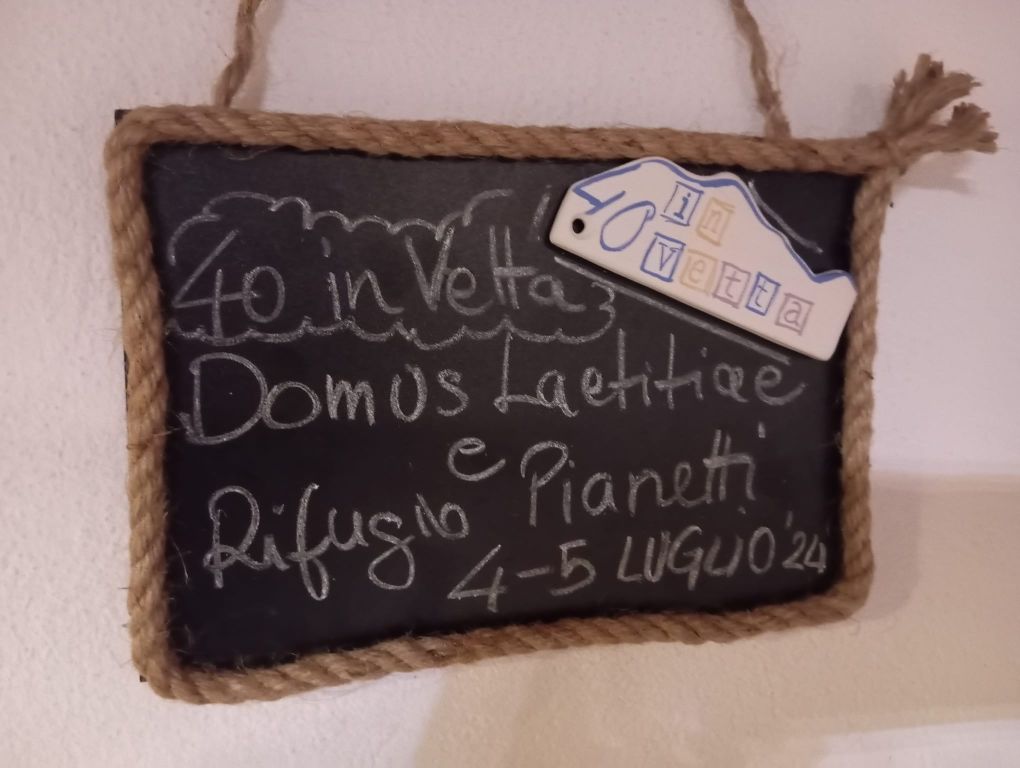 40 in Vetta
40 in
vetta
Domus Laetitiae
e
Rifugio Pianetti
4-5 LUGLIO '24